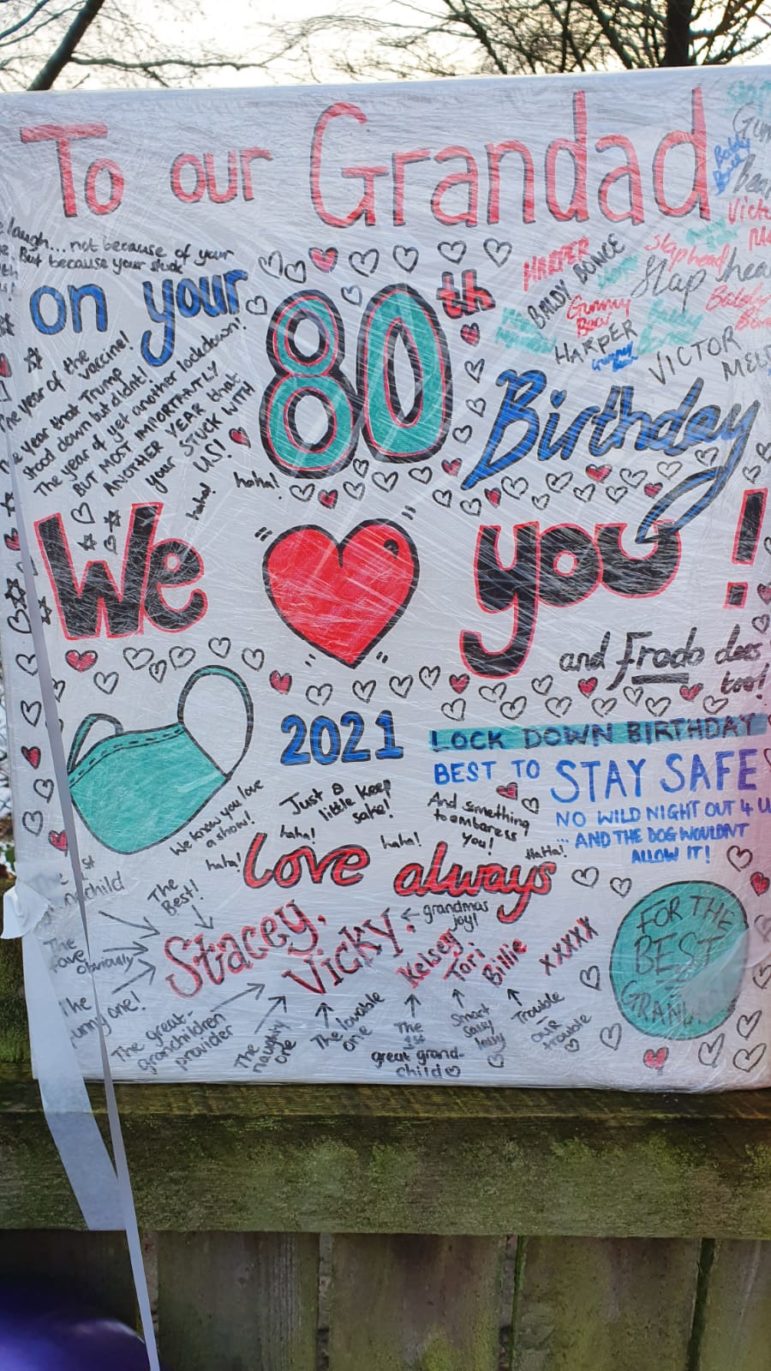 To our Grandad
laugh... not because of your
But because your stuck
on your
80th
Birthday
HARPER
BALDY BONCE
Slaphead
Slap head
Gummy
Bear
HARPER
VICTOR
The year of the vaccine!
The year that Trump
stood down but didn't!
The year of yet another lockdown!
BUT MOST IMPORTANTLY
ANOTHER YEAR that
your STUCK WITH
US!
haha!
haha!
We you!
and Frodo does
too!
2021
LOCK DOWN BIRTHDAY
BEST TO STAY SAFE
NO WILD NIGHT OUT 4 U
... AND THE DOG WOULDN'T
ALLOW IT!
We know you love
a show!
haha!
Just a
little keep
sake!
haha!
And something
to embaress
you!
haha!
HaHa!
love always
Stacey. Vicky. Kelsey Tori Billie xxxxx
The
Best!
grandmas
joy!
obviously
The great-
grandchildren
provider
The
naughty
one
The lovable
one
The
1st
great grand-
child
Smart
sassy
lassy
Trouble
our
trouble
FOR THE
BEST